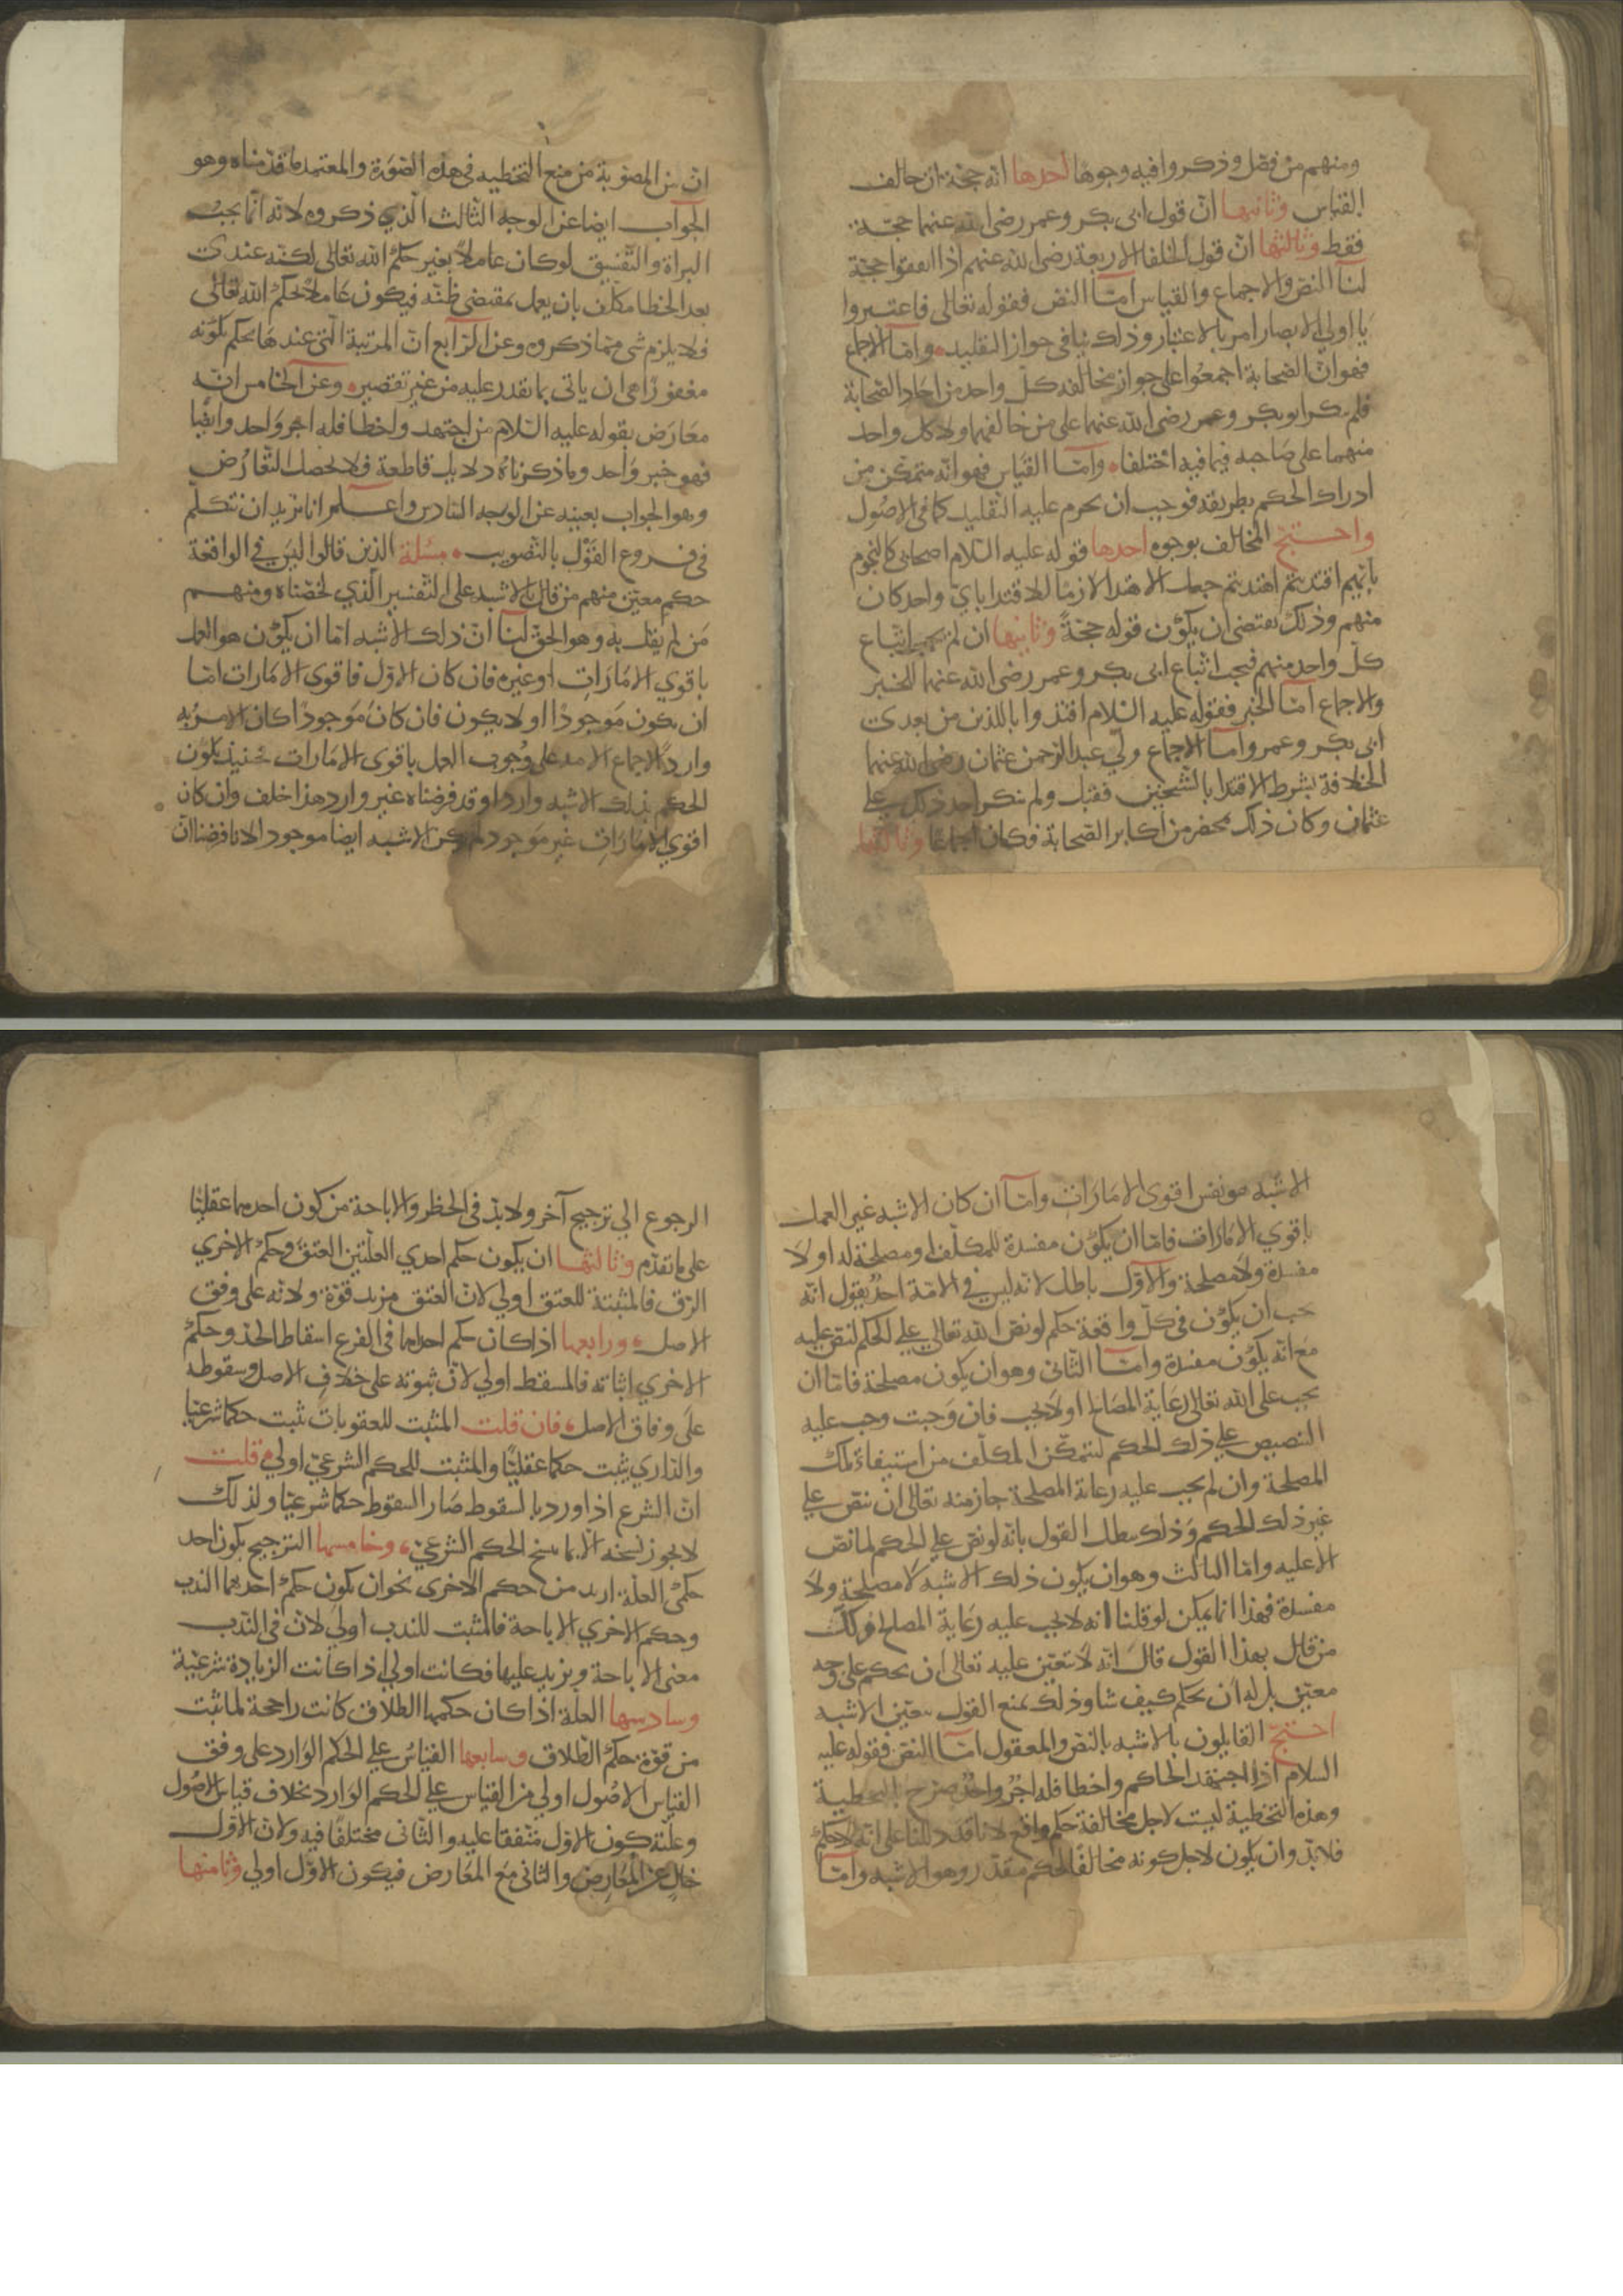 ومنهم من فصّل وذكروا فيه وجوها أحدها انه حجة ان خالف
القياس وثانيها انّ قول ابى بكر وعمر رضى الله عنهما حجّة
فقط وثالثها انّ قول الخلفا الاربعة رضى الله عنهم اذا اتفقوا حجّة
لنا النص والاجماع والقياس امّا النص فقوله تعالى فاعتبروا
يا اولي الابصار امر بالاعتبار وذلك ينافى جواز التقليد وامّا الاجماع
فهو انّ الصّحابة اجمعوا على جواز مخالفة كلّ واحد من احاد الصّحابة
فلم ينكر ابو بكر وعمر رضى الله عنهما على من خالفهما ولا كل واحد
منهما على صاحبه فيما فيه اختلفا وامّا القياس فهو انّه متمكّن من
ادراك الحكم بطريقه فوجب ان يحرم عليه التقليد كما فى الاصُول
واحتجّ المخالف بوجوه احدها قوله عليه السّلام اصحابى كالنجوم
بايّهم اقتديتم اهتديتم جعل الاهتدا لازمًا للاقتدا باىّ واحد كان
منهم وذلك يقتضى ان يكوُن قوله حجّةً وثانيها ان لم يجب اتّباع
كلّ واحد منهم فيجب اتّباع ابى بكر وعمر رضى الله عنهما للخبر
والاجماع امّا الخبر فقوله عليه السّلام اقتدوا باللذين من بعدى
ابى بكر وعمر وامّا الاجماع ولّي عبد الرّحمن عثمان رضى الله عنهما
الخلافة بشرط الاقتدا بالشّيخين فقبل ولم ينكر احد ذلك على
عثمان وكان ذلك بمحضر من اكابر الصّحابة فكان اجماعًا وثالثها
انّ من المصّوبة من منع التخطيه فى هذه الصّورة والمعتمد ما قدّمناه وهو
الجوآب ايضا عن الوجه الثّالث الّذي ذكروه لانّه انّما يجبُ
البراة والتّفسيق لو كان عاملًا بغير حكم الله تعالى لكنّه عندى
بعد الخطا مكلّف بان يعمل بمقتضى ظنّه فيكون عَاملًا بحكم الله تعالى
فلا يلزم شى ممّا ذكروه وعن الرّابع انّ المرتبة الّتي عندهَا يحكم بكونه
مغفورًا هى ان ياتى بما يقدر عليه من غير تقصير وعن الخامس انّه
معَارَض بقوله عليه السّلام من اجتهد واخطا فله اجر وَاحد وايضًا
فهو خبر وَاحد وما ذكرناهُ دلايل قاطعة فلا يحصل التّعارُض
وهو الجواب بعينه عن الوجه السّادس واعلم انا نريد ان نتكلّم
فى فروع القَوْل بالتّصويب مسئلة الّذين قالوا ليسَ فى الواقعَة
حكم معيّن منهم من قال بالاشبه على التّفسير الّذي لخّصناه ومنهم
مَن لم يقل به وهو الحقّ لنا انّ ذلك الاشبه امّا ان يكوُن هو العمل
باقوي الامَارَات او غيره فان كان الاوّل فاقوى الامَارات امّا
ان يكون مَوجودًا او لا يكون فان كانَ مَوجودًا كان الامر به
واردًا لاجماع الامه على وُجوب العمل باقوى الامَارات فحينئذ يكوُن
الحكم بذلك الاشبه واردا وقد فرضناه غير وارد هذا خلف وان كان
اقوي الامَارَاتِ غير مَوجود لم يكن الاشبه ايضا موجودا لانا فرضنا انّ
الاشبه هو نفس اقوى الامَارَات وامّا ان كان الاشبه غير العمل
باقوي الامَارَات فامّا ان يكوُن مفسدة للمكلّف او مصلحة له او لَا
مفسدة ولا مصلحة والاوّل باطل لانّه ليس فى الامّة احدٌ يقول انّه
يجب ان يكوُن فى كلّ واقعة حكم لو نصّ الله تعالى على الحكم لنصّ عليه
مع انّه يكوُن مفسدة وامّا الثّانى وهو ان يكون مصلحة فامّا ان
يجب على الله تعالى رعَاية المصَالح او لا يجب فان وَجبت وجب عليه
التنصيص على ذلك الحكم ليتمكّن المكلّف من استيفاء تلك
المصلحة وان لم يجب عليه رعاية المصلحة جاز منه تعالى ان ينصّ على
غير ذلك الحكم وَذلك يبطل القول بانّه لو نصّ على الحكم لما نصّ
الا عليه وامّا الثالث وهو ان يكون ذلك الاشبه لا مصلحة ولَا
مفسدة فهذا انما يمكن لو قلنا انه لا يجب عليه رعَاية المصلح وكلّ
من قال بهذا القول قالَ انّه لا يتعيّن عليه تعالى ان يحكم على وجه
معيّن بل له ان يحكم كيف شا وذلك يمنع القول بتعيّن الاشبه
احتجّ القايلون بالاشبه بالنصّ والمعقول امّا النصّ فقوله عليه
السلام اذا اجتهد الحاكم واخطا فله اجرٌ واحدٌ صرّح بالتخطية
وهذه التخطية ليست لاجل مخالفة حكم واقع لانا قد دللنا على انّه لا حكم
فلا بدّ وان يكون لاجل كونه مخالفًا لحكم مقدّر وهو الاشبه وامّا
الرجوع الي ترجيح آخر ولا بدّ فى الحظر والاباحة من كون احدهما عقليًّا
على ما تقدّم وثالثها ان يكون حكم احدي العلّتين العتقَ وحكم الاخري
الرّق فالمثبتة للعتق اولي لانّ العتق مزيد قوّة ولانّه على وفق
الاصل ورابعها اذا كان حكم احداهما فى الفرع اسقاط الحدّ وحكم
الاخري اثباته فالمسقط اولي لانّ ثبوته على خلاف الاصل وسقوطه
على وفاق الاصل فان قلت المثبت للعقوبات يثبت حكما شرعيّا
والدّاري يثبت حكما عقليًّا والمثبت للحكم الشّرعيّ اولي قلت
انّ الشّرع اذا ورد بالسقوط صَار السّقوط حكما شرعيّا ولذلك
لا يجوز نسخه الا بما ينسخ الحكم الشّرعيّ وخامسها الترجيح بكون احد
حكمى العلّة ازيد من حكم الاخرى نحو ان يكون حكم احديهما الندب
وحكم الاخري الاباحة فالمثبت للندب اوليَ لانّ فى النّدب
معنى الاباحة ويزيد عليها فكانت اولي اذا كانت الزيادة شرعيّة
وسادسها العلّة اذا كان حكمها الطلاق كانت راجحة لما ثبت
من قوّة حكم الطّلاق وسابعها القياسُ على الحكم الوَارد على وفق
القياس الاصُول اولي من القياس على الحكم الوَارد بخلاف قياس الاصُول
وعلّته كون الاوّل متّفقا عليه والثّانى مختلفًا فيه ولانّ الاوّل
خالٍ عن المُعَارِض والثانى مع المعَارض فيكون الاوّل اولي وثامنها